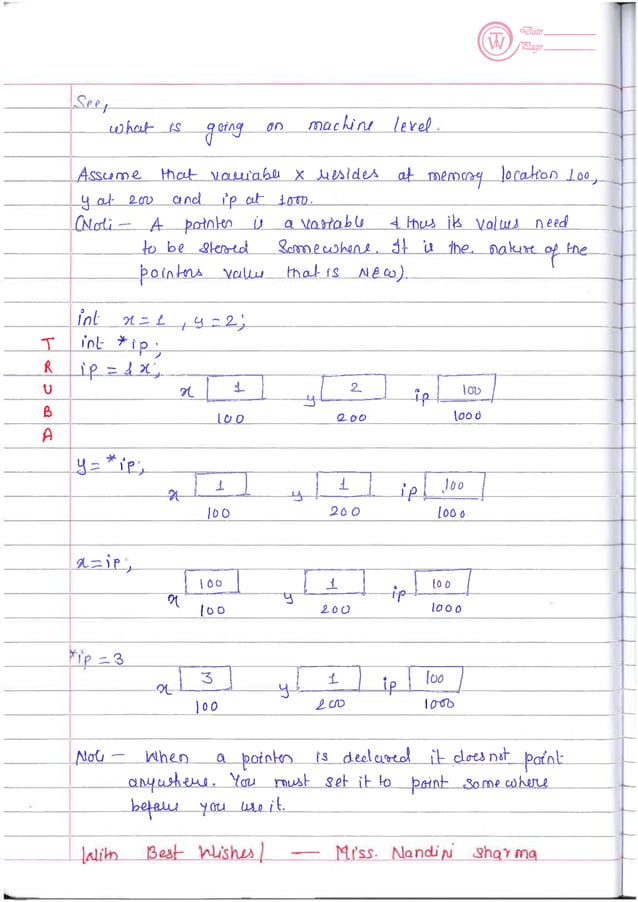 TW
Date
Page
See,
What is going on machine level.
Assume that variable x resides at memory location 100,
y at 200 and ip at 1000.
(Note - A pointer is a variable & thus its values need
to be stored somewhere. It is the nature of the
pointers value that is NEW).
int x=1, y=2;
int *ip;
ip = &x;
x 1 y 2 ip 100
100 200 1000
T
R
U
B
A
y = *ip;
x 1 y 1 ip 100
100 200 1000
x=ip;
x 100 y 1 ip 100
100 200 1000
*ip = 3
x 3 y 1 ip 100
100 200 1000
Note - When a pointer is declared it does not point
anywhere. You must set it to point somewhere
before you use it.
With Best Wishes! - Miss. Nandini Sharma